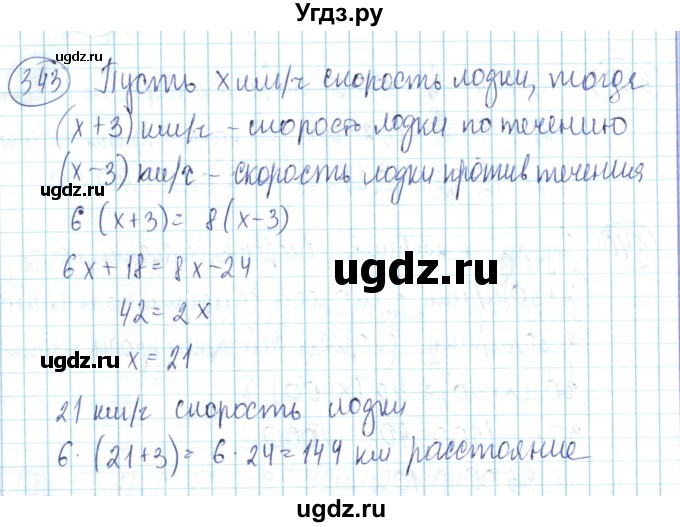 Угдз.ру
343 Пусть x км/ч скорость лодки, тогда
(x+3) км/ч – скорость лодки по течению
(x-3) км/ч – скорость лодки против течения
ugdz.ru
ugdz.ru
6 (x+3) = 8(x-3)
6x+18 = 8x-24
ugdz.ru
42 = 2x
ugdz.ru
ugdz.ru
x = 21
21 км/ч скорость лодки
6·(21+3) = 6·24 = 144 км расстояние
ugdz.ru
ugdz.ru